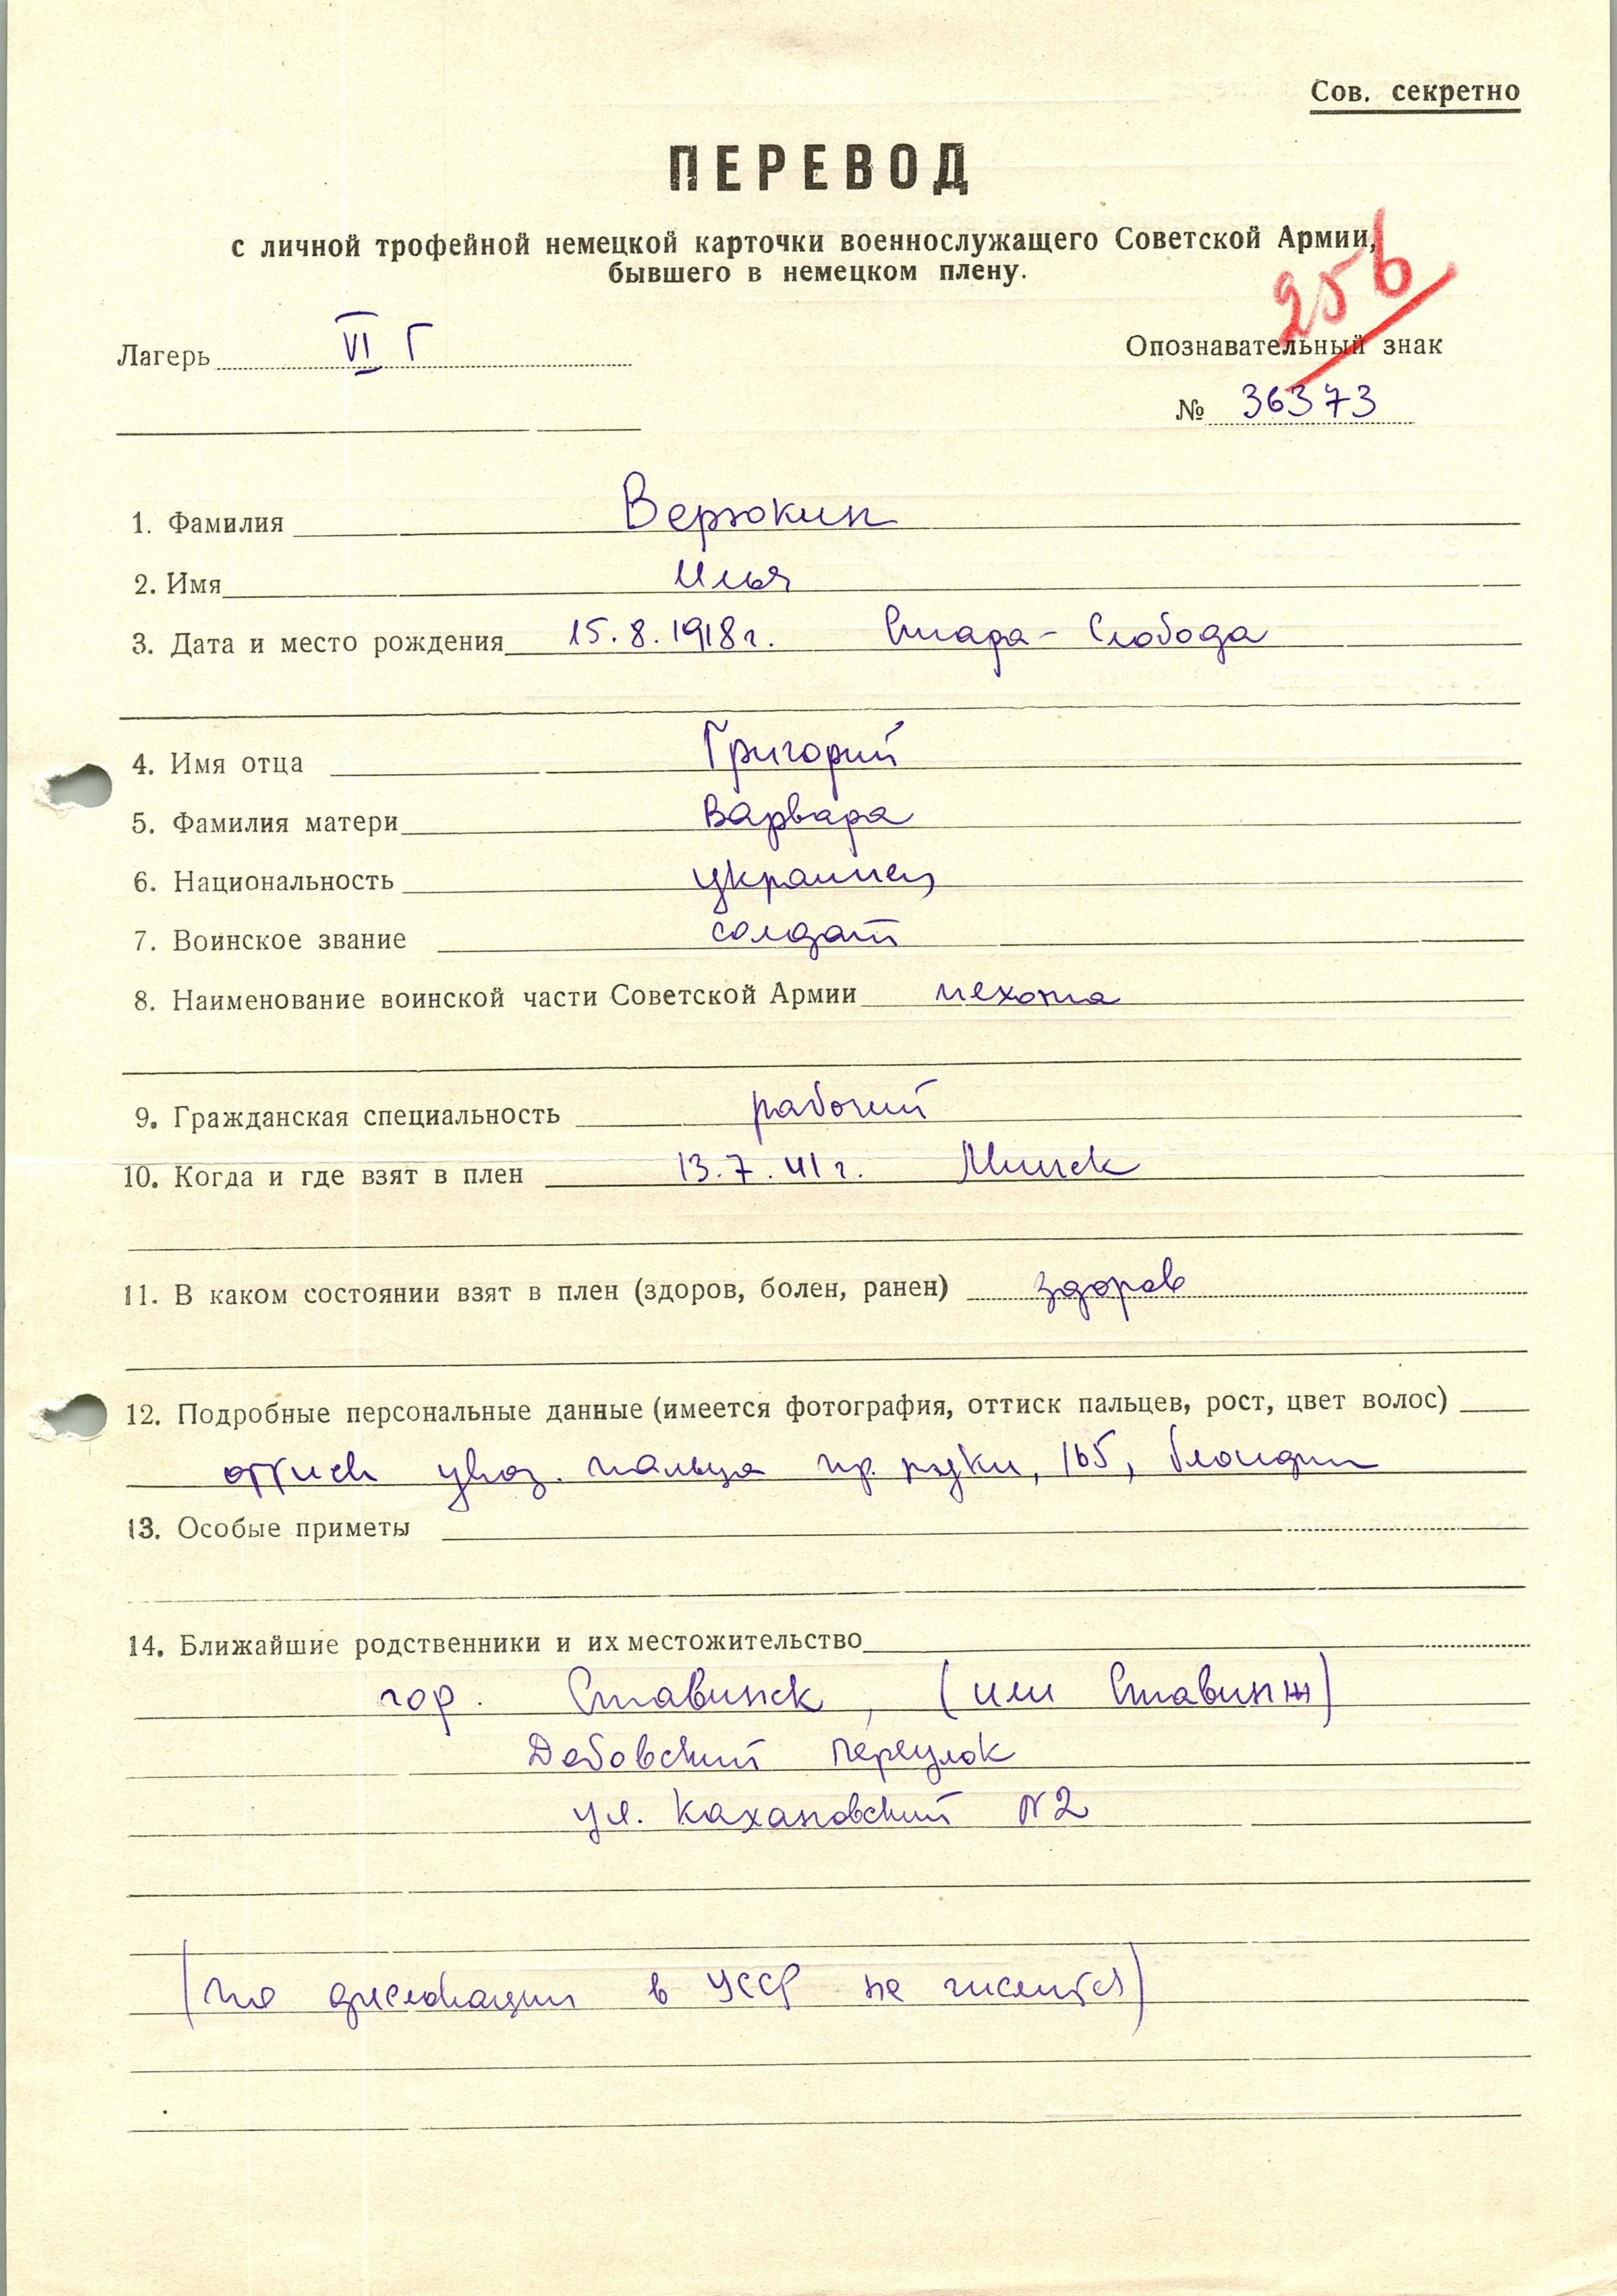 Сов. секретно
ПЕРЕВОД
с личной трофейной немецкой карточки военнослужащего Советской Армии,
бывшего в немецком плену.
256
Лагерь VI Г
Опознавательный знак
№ 36373
1. Фамилия Верюкин
2. Имя Илья
3. Дата и место рождения 15.8.1918г. Стара-Слобода
4. Имя отца Григорий
5. Фамилия матери Варвара
6. Национальность украинец
7. Воинское звание солдат
8. Наименование воинской части Советской Армии пехота
9. Гражданская специальность рабочий
10. Когда и где взят в плен 13.7.41г. Минск
11. В каком состоянии взят в плен (здоров, болен, ранен) здоров
12. Подробные персональные данные (имеется фотография, оттиск пальцев, рост, цвет волос)
оттиск указ. пальца пр. руки, 165, блондин
13. Особые приметы
14. Ближайшие родственники и их местожительство
гор. Ставинск, (или Ставинж)
Добовский переулок
ул. Кахановский N2
(по дислокации в УССР не числится)